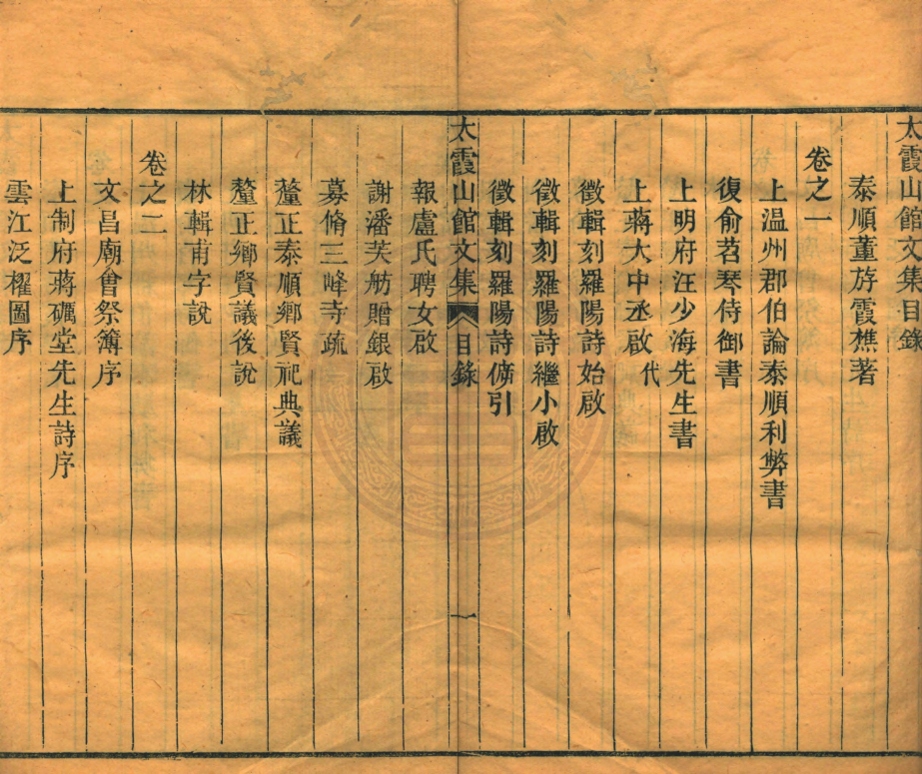 太霞山館文集目錄
泰順董斿霞樵著
卷之一
上温州郡伯論泰順利弊書
復俞苕琴侍御書
上明府汪少海先生書
上蔣大中丞啟代
徵輯刻羅陽詩始啟
徵輯刻羅陽詩繼小啟
徵輯刻羅陽詩偹引
太霞山館文集 目錄 一
報盧氏聘女啟
謝潘芙舫贈銀啟
募脩三峰寺疏
釐正泰順鄉賢祀典議
釐正鄉賢議後說
林輯甫字說
卷之二
文昌廟會祭簿序
上制府蔣礪堂先生詩序
雲江泛櫂圖序